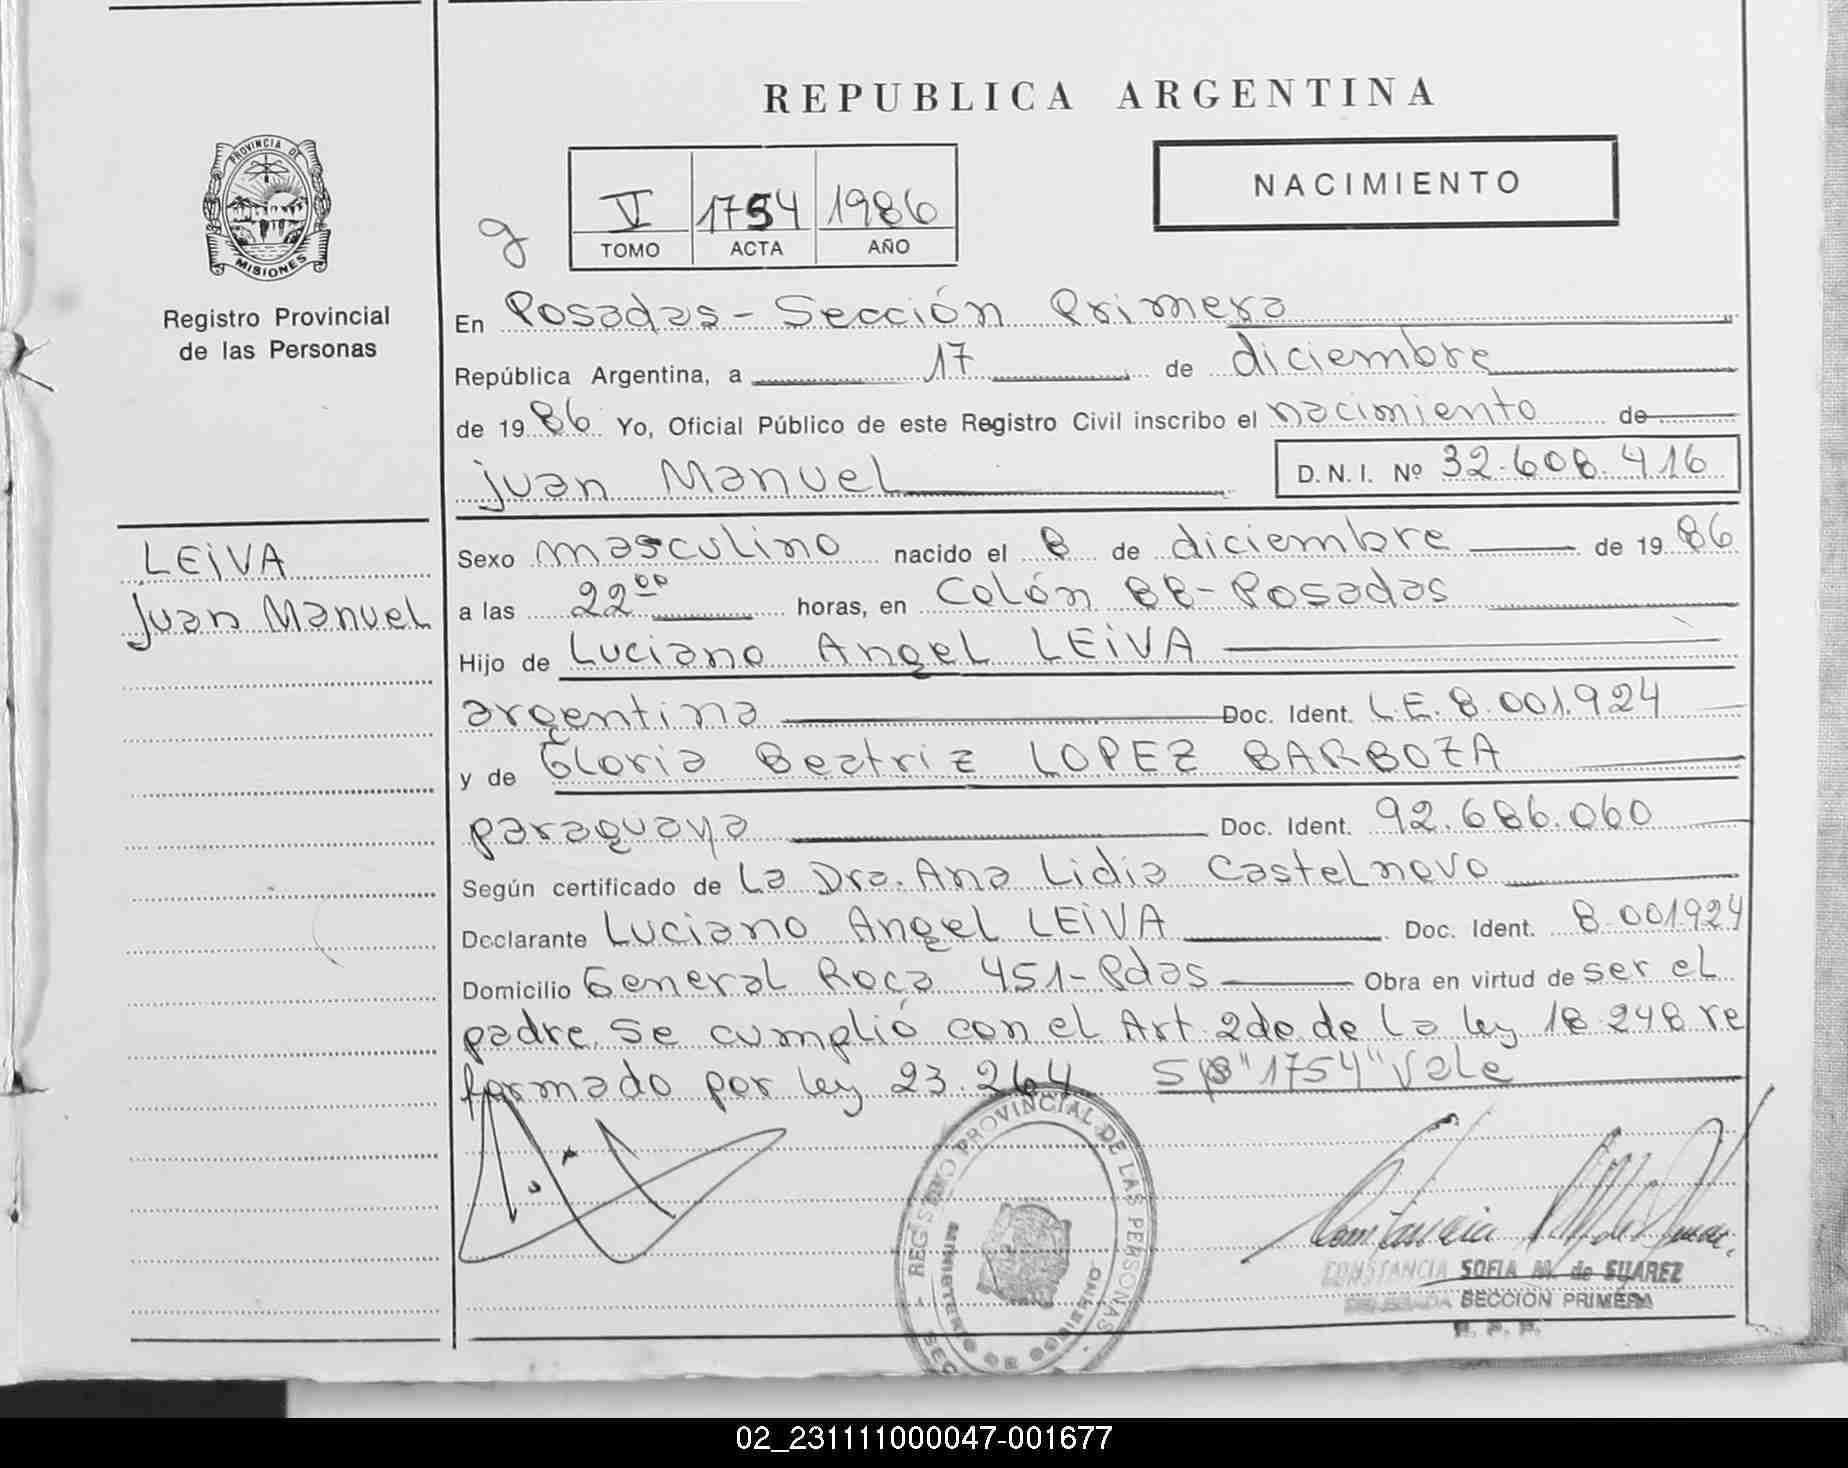 REPUBLICA ARGENTINA
PROVINCIA DE
MISIONES
Registro Provincial
de las Personas
NACIMIENTO
V 1754 1986
TOMO ACTA AÑO
En Posadas - Sección Primera
República Argentina, a 17 de diciembre
de 1986 Yo, Oficial Público de este Registro Civil inscribo el nacimiento de
Juan Manuel D.N.I. Nº 32.608.416
LEIVA
Juan Manuel
Sexo masculino nacido el 8 de diciembre de 1986
a las 22 00 horas, en Colón 88 - Posadas
Hijo de Luciano Angel LEIVA
argentina Doc. Ident. L.E. 8.001.924
y de Gloria Beatriz LOPEZ BARBOZA
paraguaya Doc. Ident. 92.686.060
Según certificado de La Dra. Ana Lidia Castelnovo
Declarante Luciano Angel LEIVA Doc. Ident. 8.001.924
Domicilio General Roca 451 - Pdas Obra en virtud de ser el
padre. Se cumplió con el Art. 2do. de la ley 18.248 re
formado por ley 23.264 "1754" Vale
REGISTRO PROVINCIAL DE LAS PERSONAS
DE GOBIERNO
CONSTANCIA SOFIA M. de SUAREZ
DELEGADA SECCION PRIMERA
R. P. P.
02_231111000047-001677